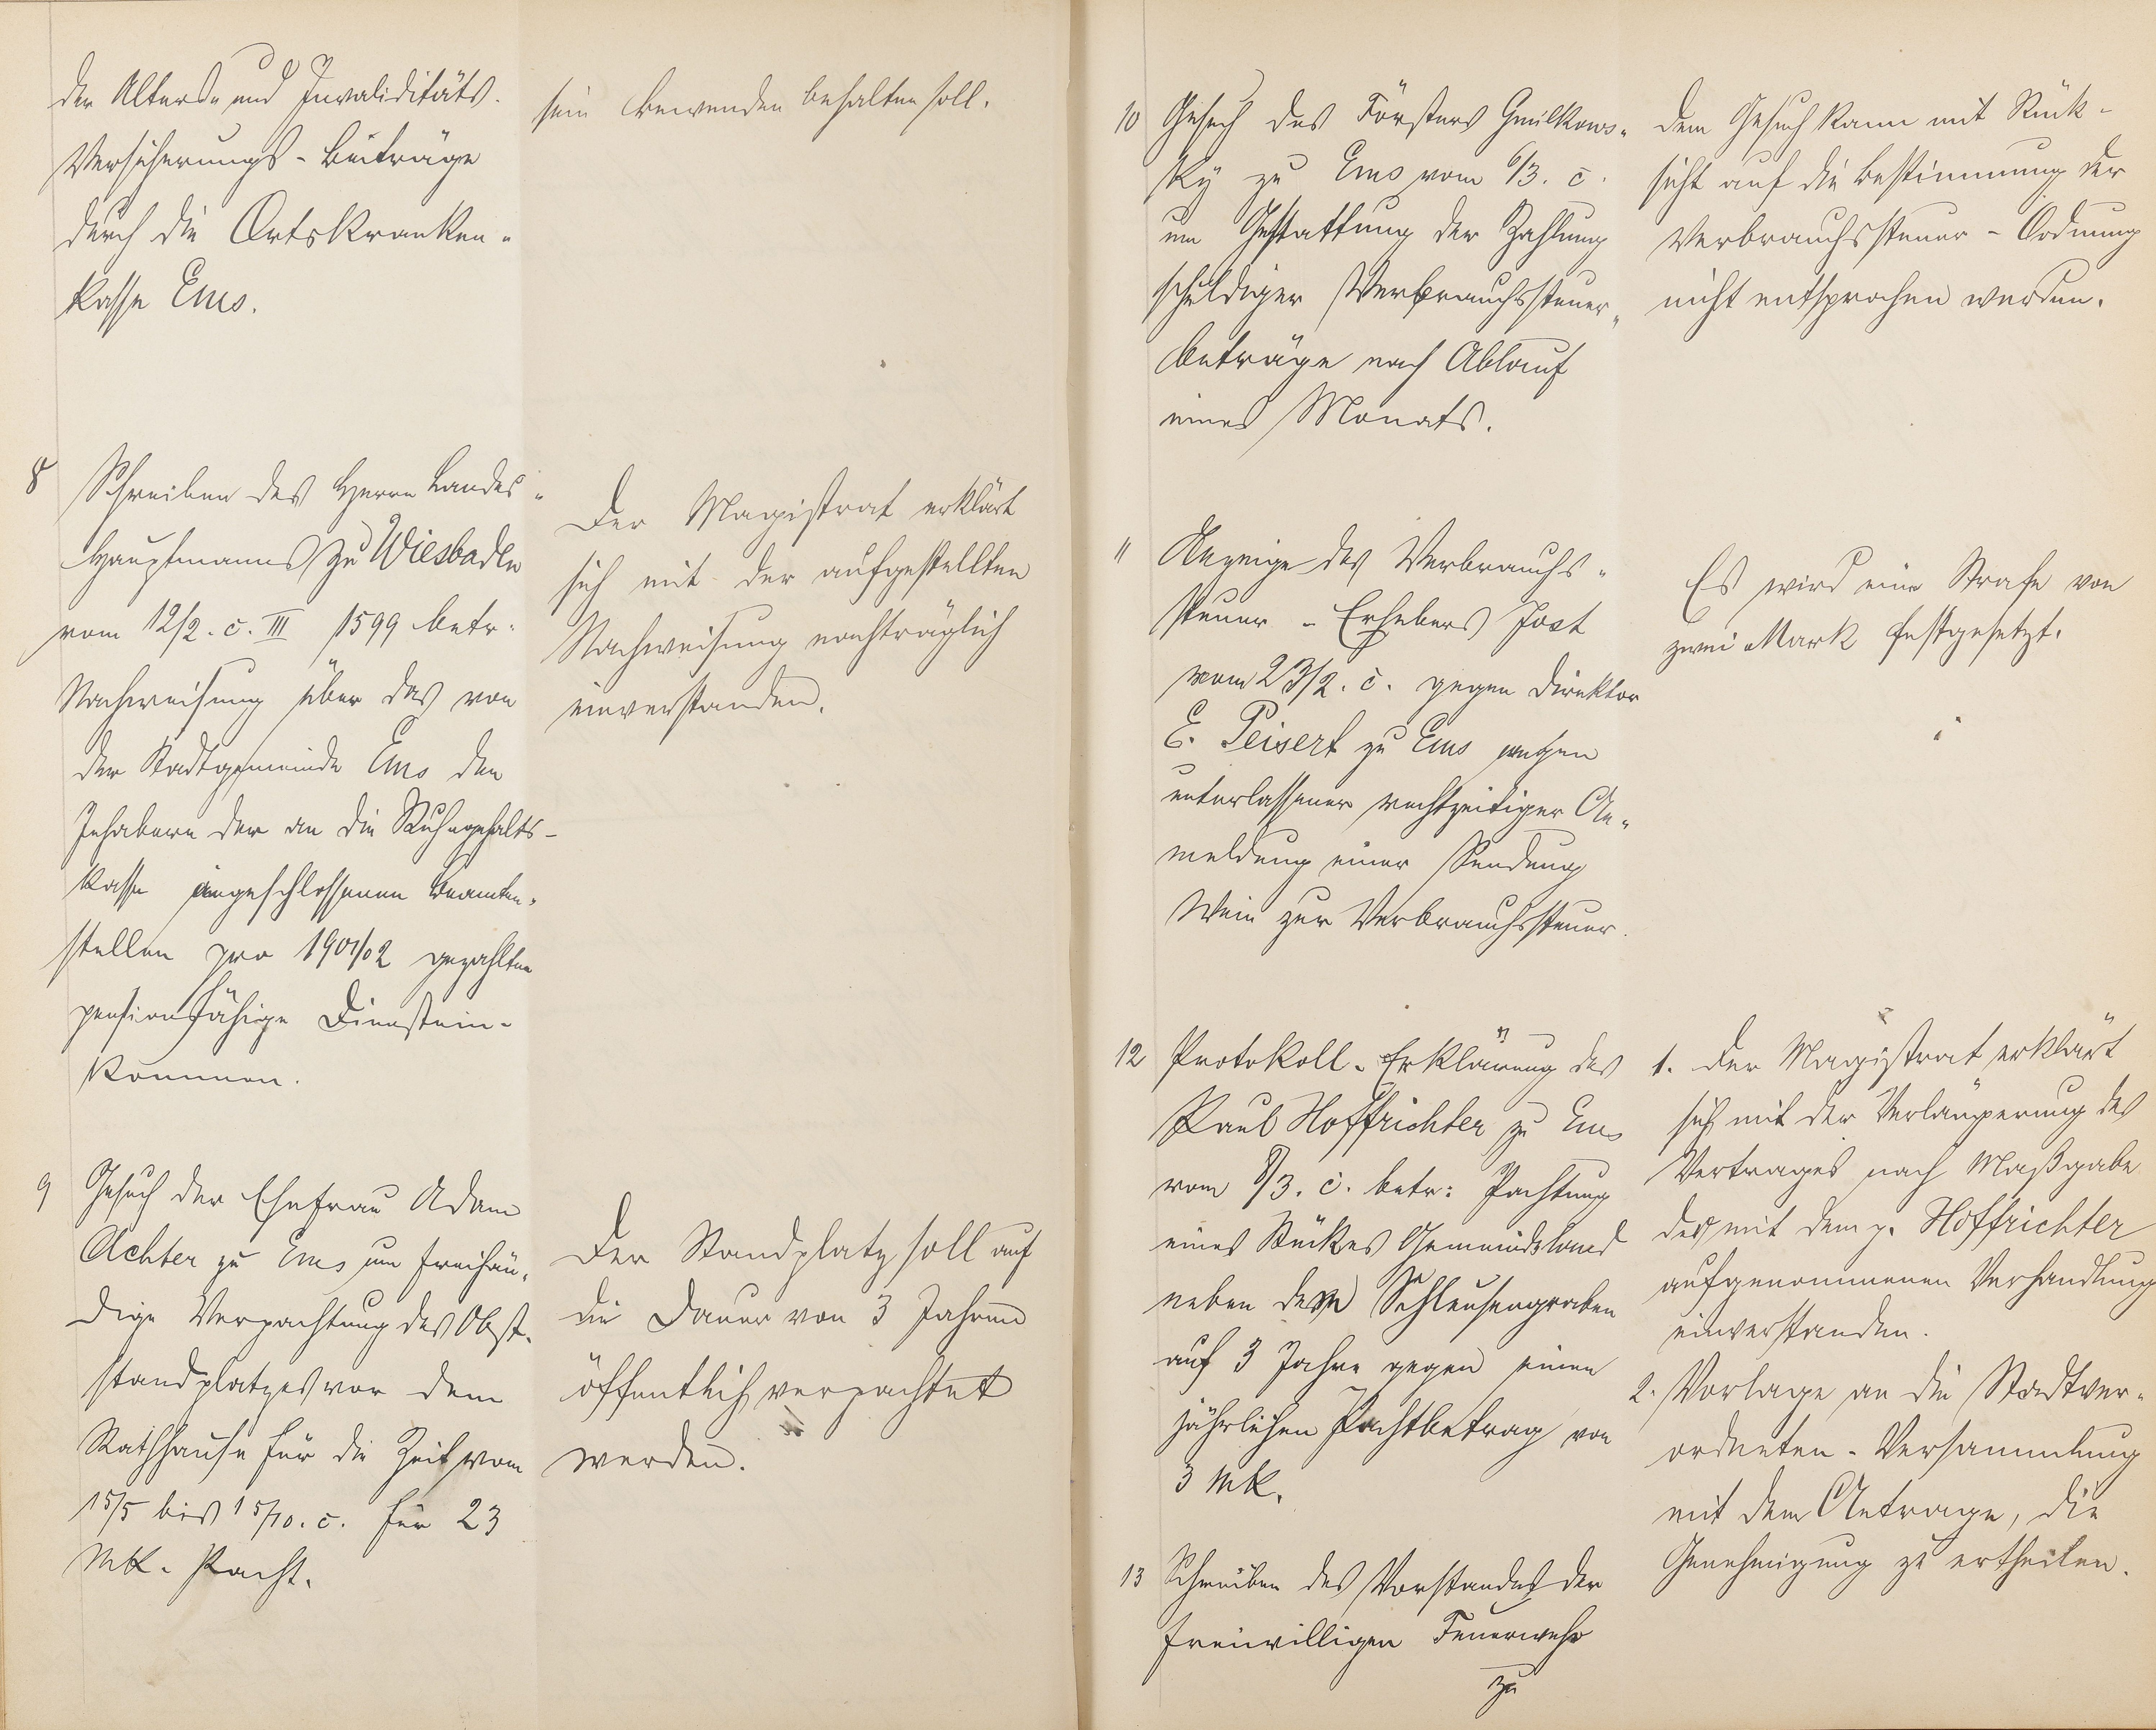 der Alters- und Invaliditäts-
Versicherungs-Beiträge
durch die Ortskranken-
kasse Ems.
sein Bewenden behalten soll.
8 Schreiben des Herrn Landes-
Hauptmanns zu Wiesbaden
vom 12/2. c. III 1599 betr.
Nachweisung über das von
der Stadtgemeinde Ems den
Inhabern der an die Ruhegehalts-
kasse angeschlossenen Beamten-
stellen pro 1901/02 gezahlten
pensionsfähige Dienstein-
kommen.
Der Magistrat erklärt
sich mit der aufgestellten
Nachweisung nachträglich
einverstanden.
9 Gesuch der Ehefrau Adam
Achter zu Ems um freihän-
dige Verpachtung des Obst-
standplatzes vor dem
Rathhause für die Zeit vom
15/5 bis 15/10. c. für 23
Mk. Pacht.
Der Standplatz soll auf
die Dauer von 3 Jahren
öffentlich verpachtet
werden.
10 Gesuch des Försters
zu Ems vom 6/3. c.
um Gestattung der Zahlung
schuldiger Verbrauchssteuer-
beträge nach Ablauf
eines Monats.
Dem Gesuch kann mit Rück-
sicht auf die Bestimmung der
Verbrauchssteuer-Ordnung
nicht entsprochen werden.
11 Anzeige des Verbrauchs-
steuer-Erhebers Jost
vom 23/2. c. gegen Direktor
E. Peisert zu Ems wegen
unterlassener rechtzeitiger An-
meldung einer Sendung
Wein zur Verbrauchssteuer.
Es wird eine Strafe von
zwei Mark festgesetzt.
12 Protokoll-Erklärung des
Paul Hoffrichter zu Ems
vom 8/3. c. betr: Pachtung
eines Stückes Gemeindeland
neben dem Schleusengraben
auf 3 Jahre gegen einen
jährlichen Pachtbetrag von
3 Mk.
1. Der Magistrat erklärt
sich mit der Verlängerung des
Vertrages nach Maßgabe
der mit dem p. Hoffrichter
aufgenommenen Verhandlung
einverstanden.
2. Vorlage an die Stadtver-
ordneten-Versammlung
mit dem Antrage, die
Genehmigung zu ertheilen.
13 Schreiben des Vorstandes der
freiwilligen Feuerwehr
zu